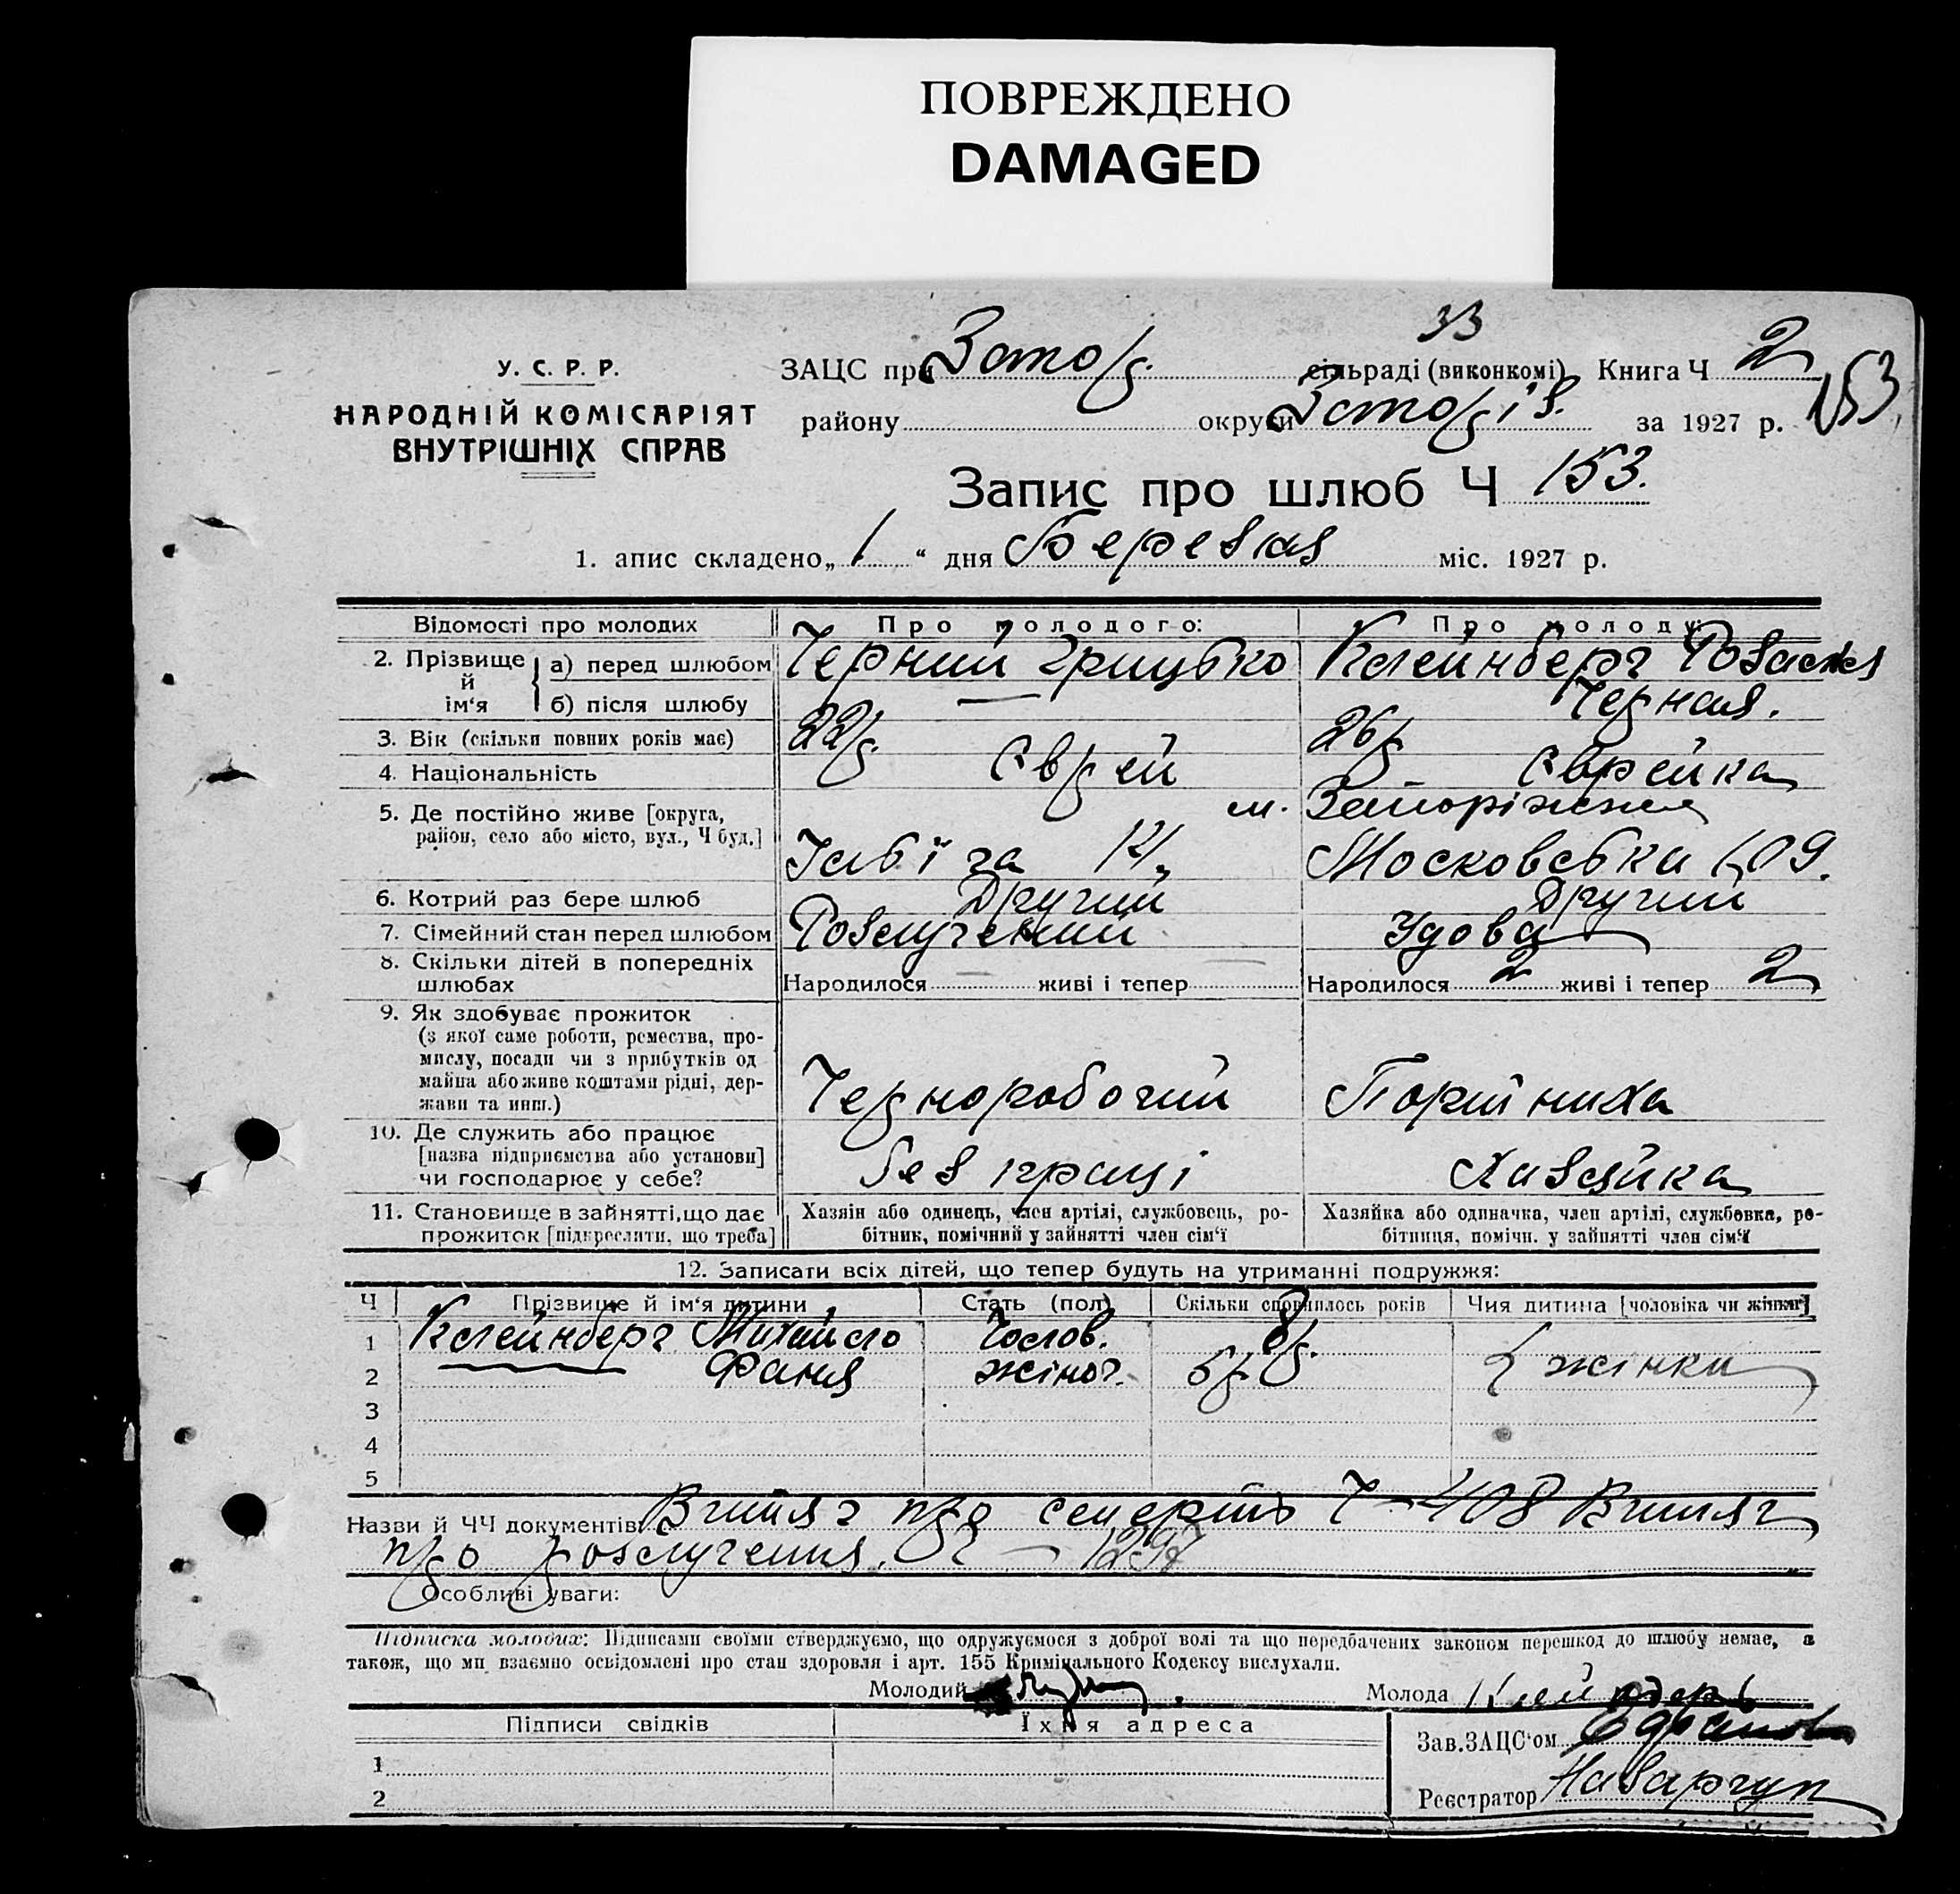 ПОВРЕЖДЕНО
DAMAGED
33
У. С. Р. Р.
НАРОДНІЙ КОМІСАРІЯТ
ВНУТРІШНІХ СПРАВ
ЗАЦС при Запор. сільраді (виконкомі) Книга Ч 2
району округи Запорiз. за 1927 р. 153
Запис про шлюб Ч 153.
1. апис складено „ 1 “ дня березня міс. 1927 р.
Відомості про молодих Про молодого: Про молоду:
2. Прізвище й ім‘я а) перед шлюбом Черний Грицько Клейнберг Розалія
б) після шлюбу — Черная.
3. Вік (скільки повних років має) 22 р. 26 р.
4. Національність Єврей Єврейка
5. Де постійно живе [округа, м. Запоріжжя
район, село або місто, вул., Ч буд.] 12, Московська 109.
6. Котрий раз бере шлюб Другий Другий
7. Сімейний стан перед шлюбом Розлучений Удова
8. Скільки дітей в попередніх
шлюбах Народилося — живі і тепер — Народилося 2 живі і тепер 2
9. Як здобуває прожиток
(з якої саме роботи, ремества, про-
мислу, посади чи з прибутків од
майна або живе коштами рідні, дер-
жави та инш.) Черноробочий
10. Де служить або працює
[назва підприємства або установи]
чи господарює у себе? Без праці Хазяйка
11. Становище в зайнятті, що дає Хазяін або одинець, член артілі, службовець, ро- Хазяйка або одиначка, член артілі, службовка, ро-
прожиток [підкреслити, що треба] бітник, помічний у зайнятті член сім‘ї бітниця, помічн. у зайнятті член сім‘ї
12. Записати всіх дітей, що тепер будуть на утриманні подружжя:
Ч Прізвище й ім‘я дитини Стать (пол) Скільки сповнилось років Чия дитина [чоловіка чи жінки]
1 Клейнберг Михайло Чолов. 8 р.
2 — Фаня жіноч. 6 р. жінки
3
4
5
Назви й ЧЧ документів: Витяг про смерть Ч – 408 Витяг
про розлучення. Ч –
Особливі уваги:
Підписка молодих: Підписами своїми стверджуємо, що одружуємося з доброї волі та що передбачених законом перешкод до шлюбу немає, а
також, що ми взаємно освідомлені про стан здоровля і арт. 155 Кримінального Кодексу вислухали.
Молодий Молода
Підписи свідків Їхня адреса
Зав. ЗАЦС‘ом
1
Реєстратор
2